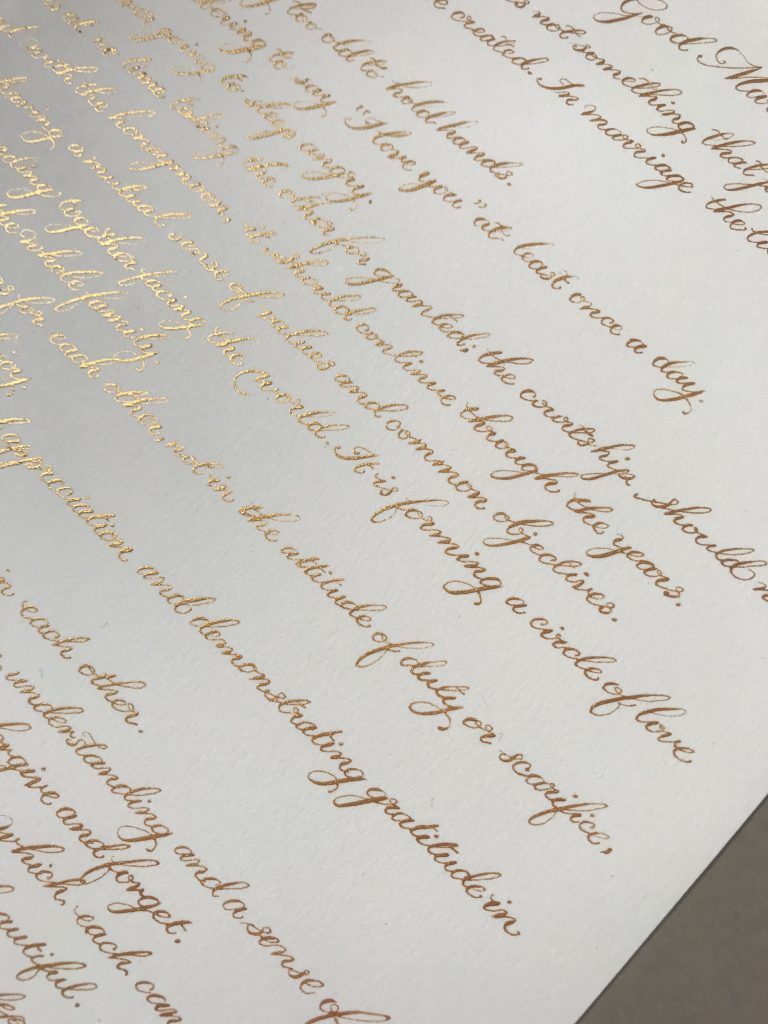 Good Mar
s not something that j
e created. In marriage the li
too old to hold hands.
to say "I love you" at least once a day.
going to sleep angry.
at no time taking the other for granted; the courtship should n
with the honeymoon, it should continue through the years.
having a mutual sense of values and common objectives.
nding together facing the world. It is forming a circle of love
the whole family.
for each other, not in the attitude of duty or scarifice,
joy.
appreciation and demonstrating gratitude in
in each other.
understanding and a sense of
orgive and forget.
which each can
autiful.